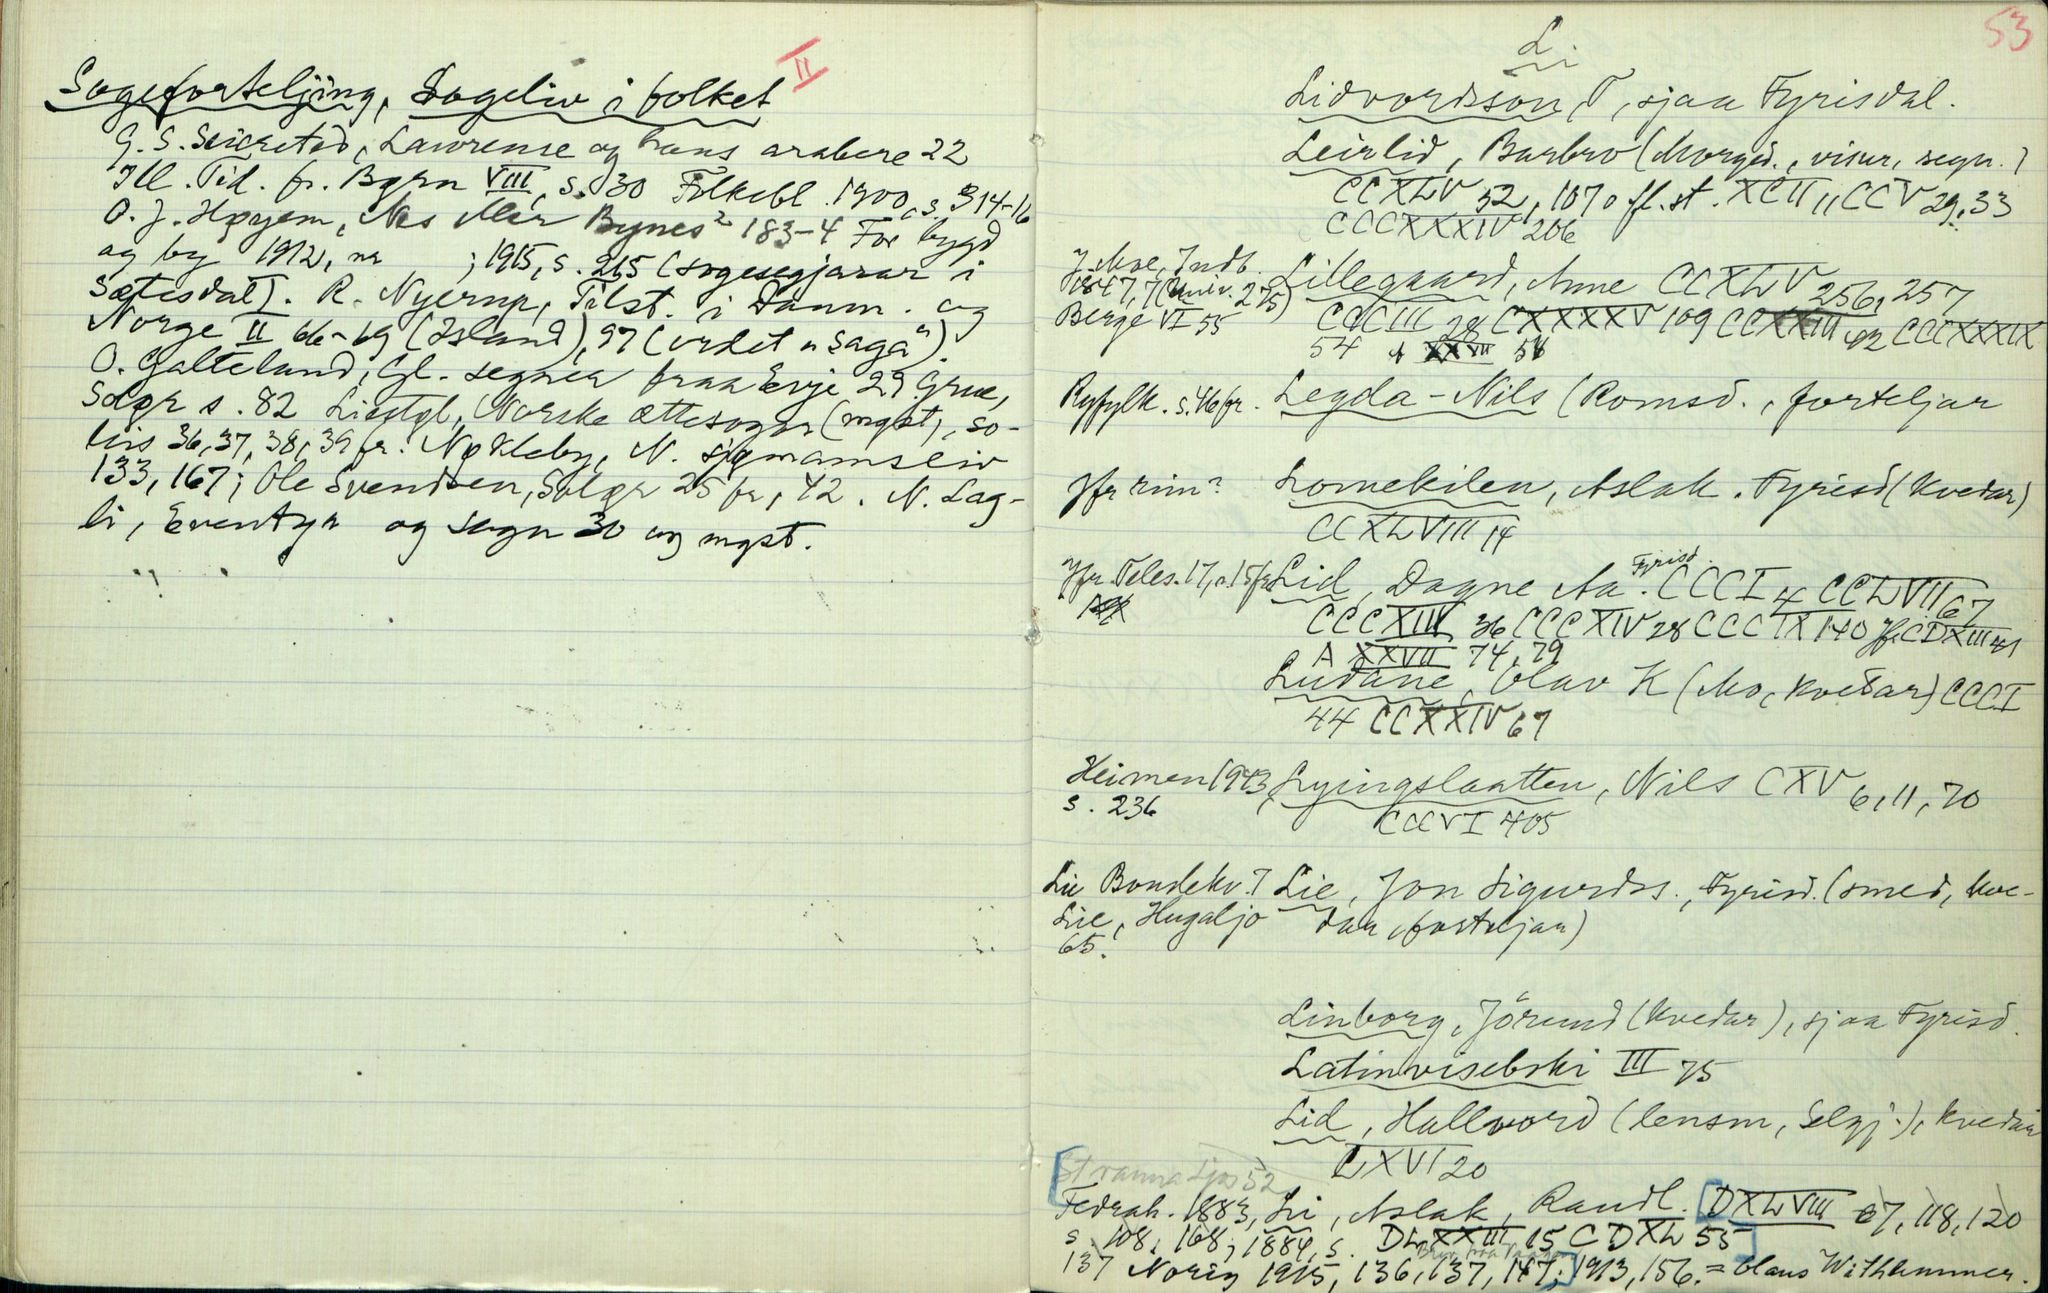 II
Sogeforteljing, Sogeliv i folket
G. S. Seierstad, Lawrense og hans arabere 22
Ill. Tid. fr. Børn VIII, s. 30 Folkebl. 1900, s. 314-16
O. J. Høyem, Nos Mer Bynes² 183-4 For bygd
og by 1912, nr ; 1915, s. 215 (sogesegjarar i
Sætesdal). R. Nyerup, Tilst. i Danm. og
Norge II 66-69 (Island), 97 (ordet "saga").
O. Galteland, Gl. segner fraa Evje 29 Grue,
Solør s. 82 Liestøl, Norske ættesogor (mgst), so-
lis 36, 37, 38, 39 fr. Nøkleby, N. sjømansliv
133, 167; Ole Svendsen, Solør 25 fr, 42. N. Lag-
li, Eventyr og segn 30 og mgst.
53
L.
Lidvordsson, T, sjaa Fyrisdal.
Leirlid, Barbro (Morged., visur, segn.)
CCXLV 52, 107 o fl. st. XCII 11 CCV 29, 33
CCCXXXIV 206
J. Moe, Indb.
1847, 7 (Univ. 275) Lillegaard, Anne CCXLV 256, 257
Berge VI 55 CCCIII 28 CXXXXV 109 CCXXIII 42 CCCXXXIX
54 A XXVII 54
Ryfylk. s. 46 fr. Legda-Nils (Romsd., forteljar
Jfr rim? Lomekilen, Aslak. Fyrisd (kvedar)
CCXLVIII 14
Jfr. Teles. 17, s. 15 fr Lid, Dagne Aa. Fyrisd. CCCI 4 CCLVII 67
CCCXIII 36 CCCXIV 28 CCCIX 140 Jfr. CDXIII 41
A XXVII 74, 79
Ludane, Olav K (Mo, kvedar) CCCI
44 CCXXIV 67
Heimen 1943, Lyingslaatten, Nils CXV 6, 11, 70
s. 236 CCCVI 405
Lie Bondekv. 7 Lie, Jon Sigurdss., Fyrisd. (smed, kve-
Lie, Hugaljo dar, forteljar)
65.
Linborg, Jörund (kvedar), sjaa Fyrisd.
Latinvisebski III 75
Lid, Hallvord (lensm, Selgj.), kvedar
CXVI 20
Stranna Ljos 52
Fedrah. 1883, Li, Aslak, Raudl. DXLVIII 67, 118, 120
s. 108, 168; 1884, s. DLXXIII 15 CDXL 55
137 Norig 1915, 136, 137, 147; 1913, 156. = Olaus Withammer.